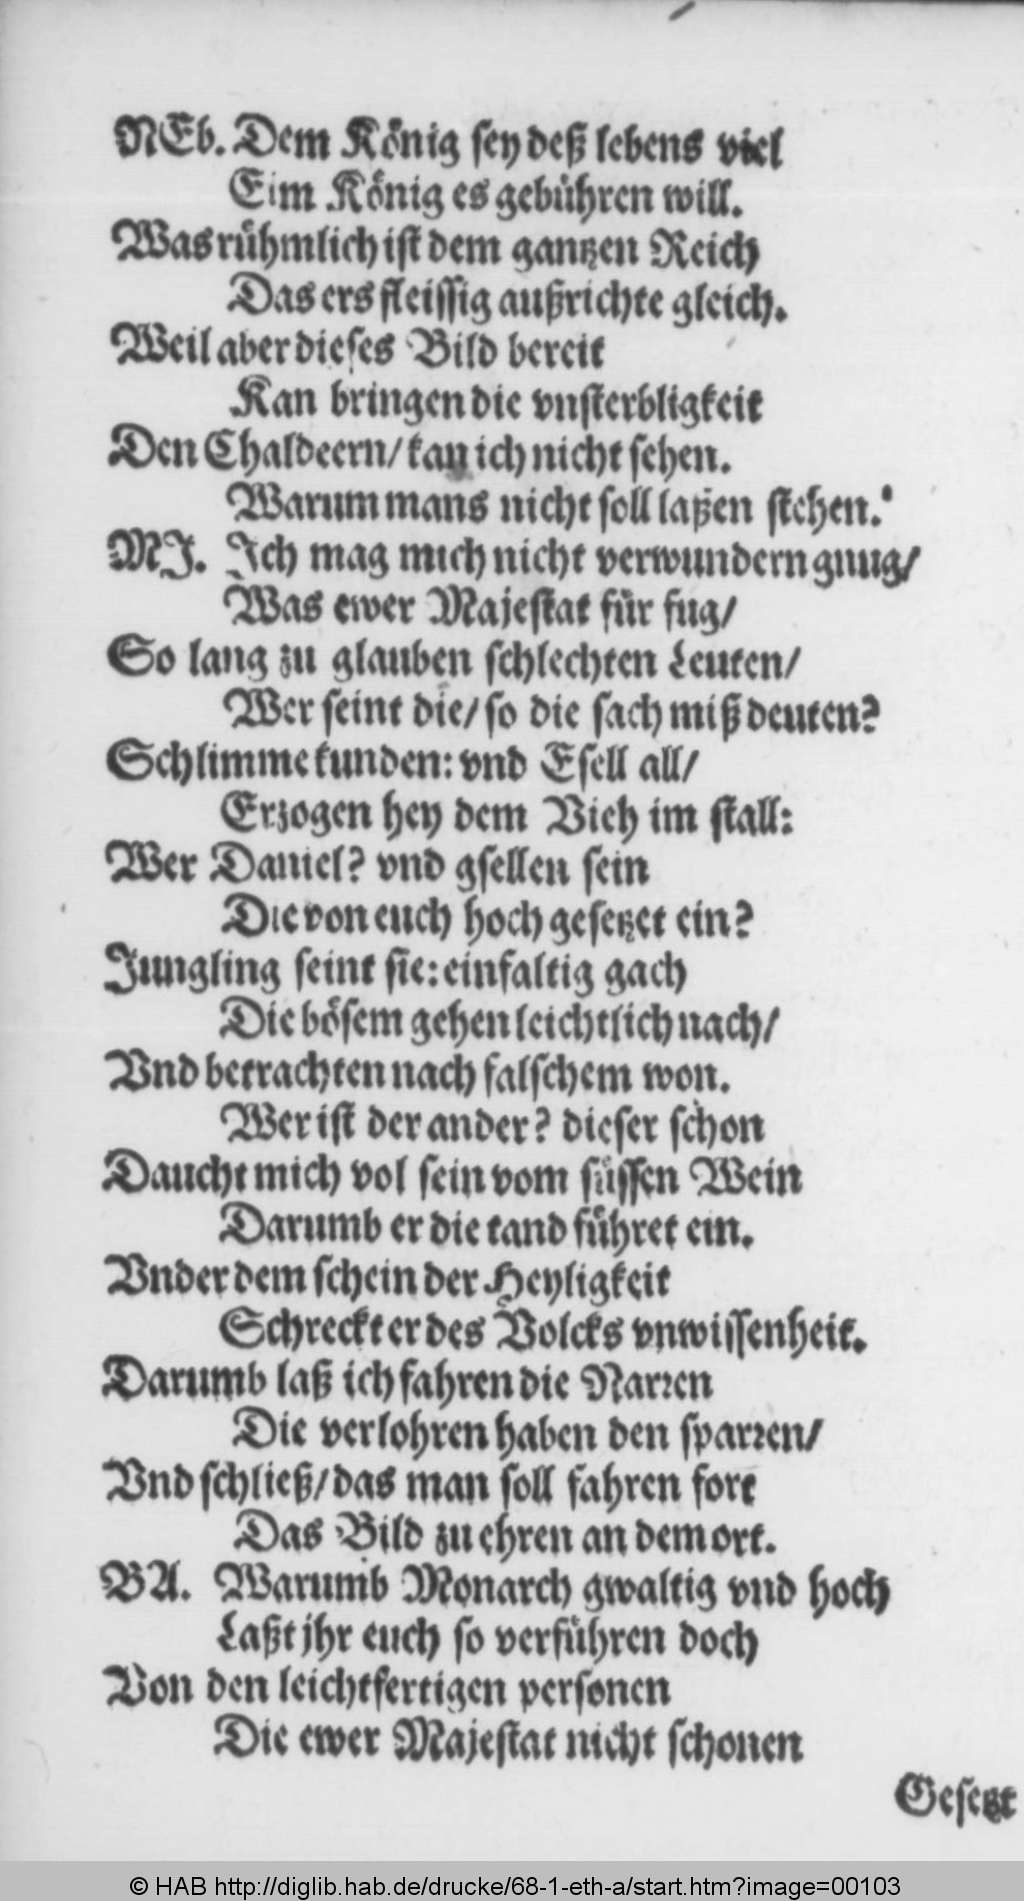 NEb. Dem König sey deß lebens viel
Eim König es gebühren will.
Was rühmlich ist dem gantzen Reich
Das ers fleissig außrichte gleich.
Weil aber dieses Bild bereit
Kan bringen die vnsterbligkeit
Den Chaldeern/ kan ich nicht sehen.
Warum mans nicht soll laßen stehen.
MJ. Ich mag mich nicht verwundern gnug/
Was ewer Majestat für fug/
So lang zu glauben schlechten Leuten/
Wer seint die/ so die sach mißdeuten?
Schlimme kunden: vnd Esell all/
Erzogen hey dem Vieh im stall:
Wer Daniel? vnd gsellen sein
Die von euch hoch gesetzet ein?
Jungling seint sie: einfaltig gach
Die bösem gehen leichtlich nach/
Vnd betrachten nach falschem won.
Wer ist der ander? dieser schon
Daucht mich vol sein vom süssen Wein
Darumb er die tand führet ein.
Vnder dem schein der Heyligkeit
Schreckt er des Volcks vnwissenheit.
Darumb laß ich fahren die Narren
Die verlohren haben den sparren/
Vnd schließ/ das man soll fahren fort
Das Bild zu ehren an dem ort.
BA. Warumb Monarch gwaltig vnd hoch
Laßt jhr euch so verführen doch
Von den leichtfertigen personen
Die ewer Majestat nicht schonen
Gesetzt
© HAB http://diglib.hab.de/drucke/68-1-eth-a/start.htm?image=00103